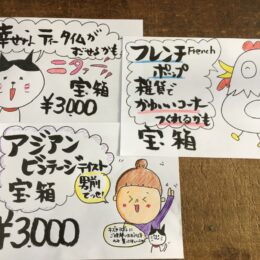 幸せな ティータイムが
おとずれるかも
ニタァ〜
宝箱
¥3,000
フレンチ French
ポップ
雑貨で
かわいいコーナー
つくれるかも
宝箱
アジアン
ビンテージテイスト
宝箱
男前
でっせ!
¥3,000